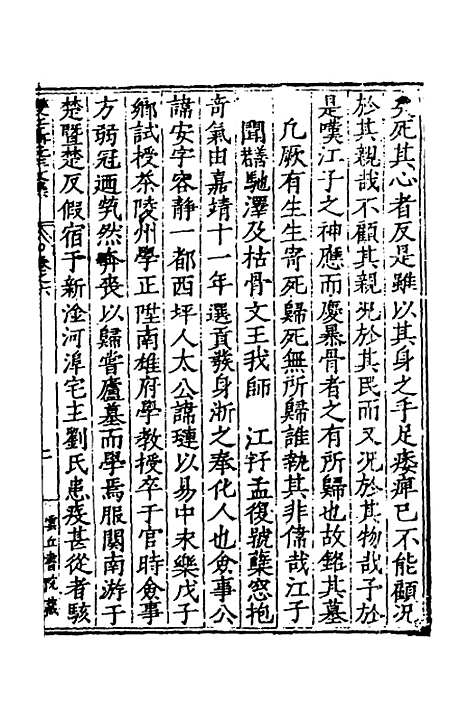 死其心者反是雖以其身之手足痿痺已不能顧況
於其親哉不顧其親況於其民而又況於其物哉子於
是嘆江子之神應而慶暴骨者之有所歸也故銘其墓
凡厥有生生寄死歸死無所歸誰執其非儔哉江子
聞鵲馳澤及枯骨文王我師　江秆孟復號蘖窓抱
奇氣由嘉靖十一年選貢發身浙之奉化人也僉事公
諱安字容靜一都西坪人太公諱璉以易中永樂戊子
鄉試授茶陵州學正陞南雄府學教授卒于官時僉事
方弱冠廼煢然奔喪以歸嘗廬墓而學焉服闋南游于
楚暨楚反假宿于新淦河埠宅主劉氏患疫甚從者駭
雲丘書院藏